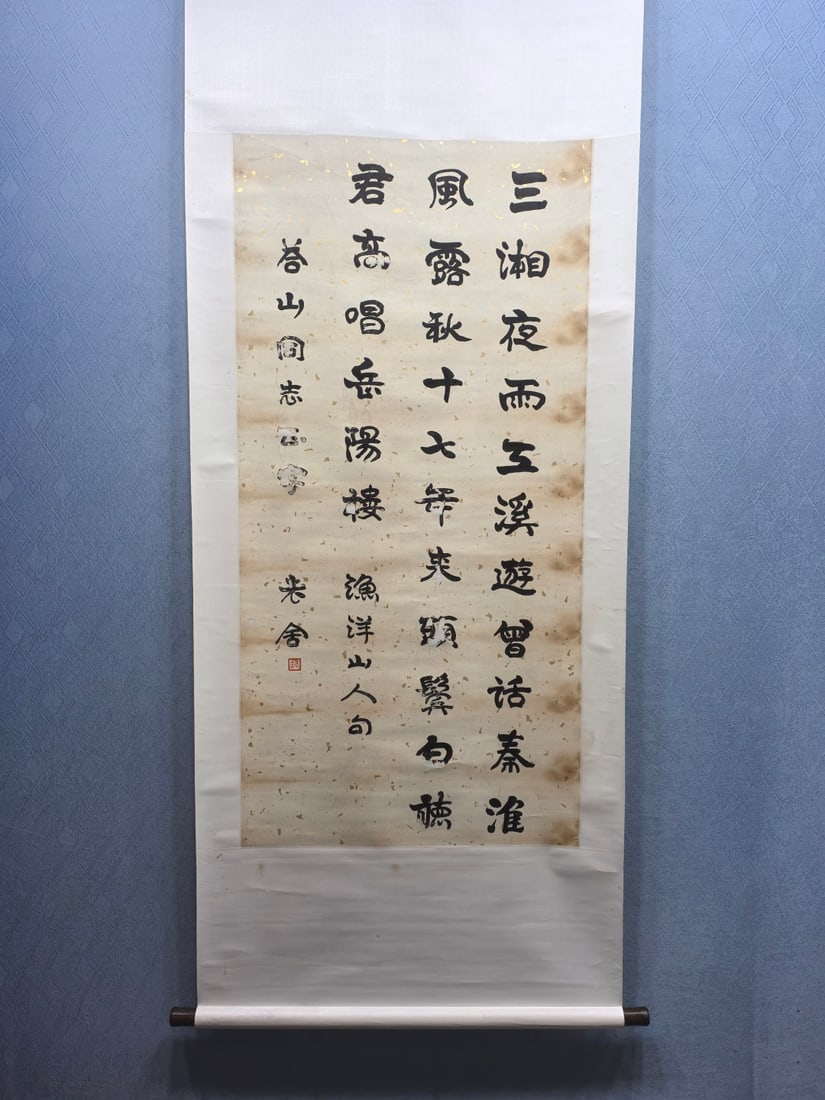 三湘夜雨五溪遊曾話秦淮
風露秋十七年來頭鬢白聽
君高唱岳陽樓 漁洋山人句
山同志正字 老舍